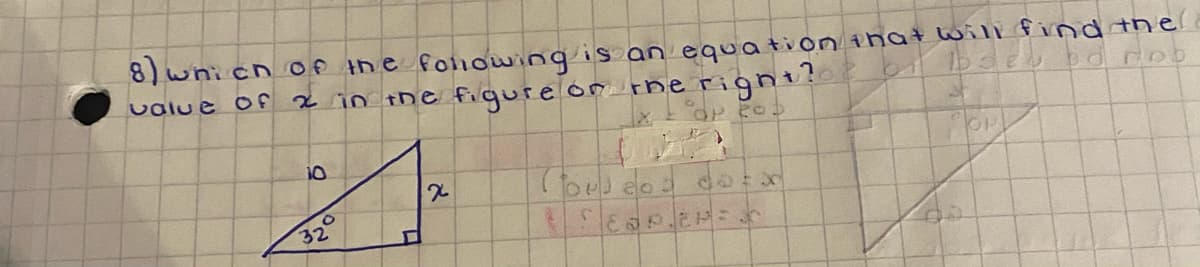 8) which of the following is an equation that will find the
value of x in the figure on the right?
10
x
32°